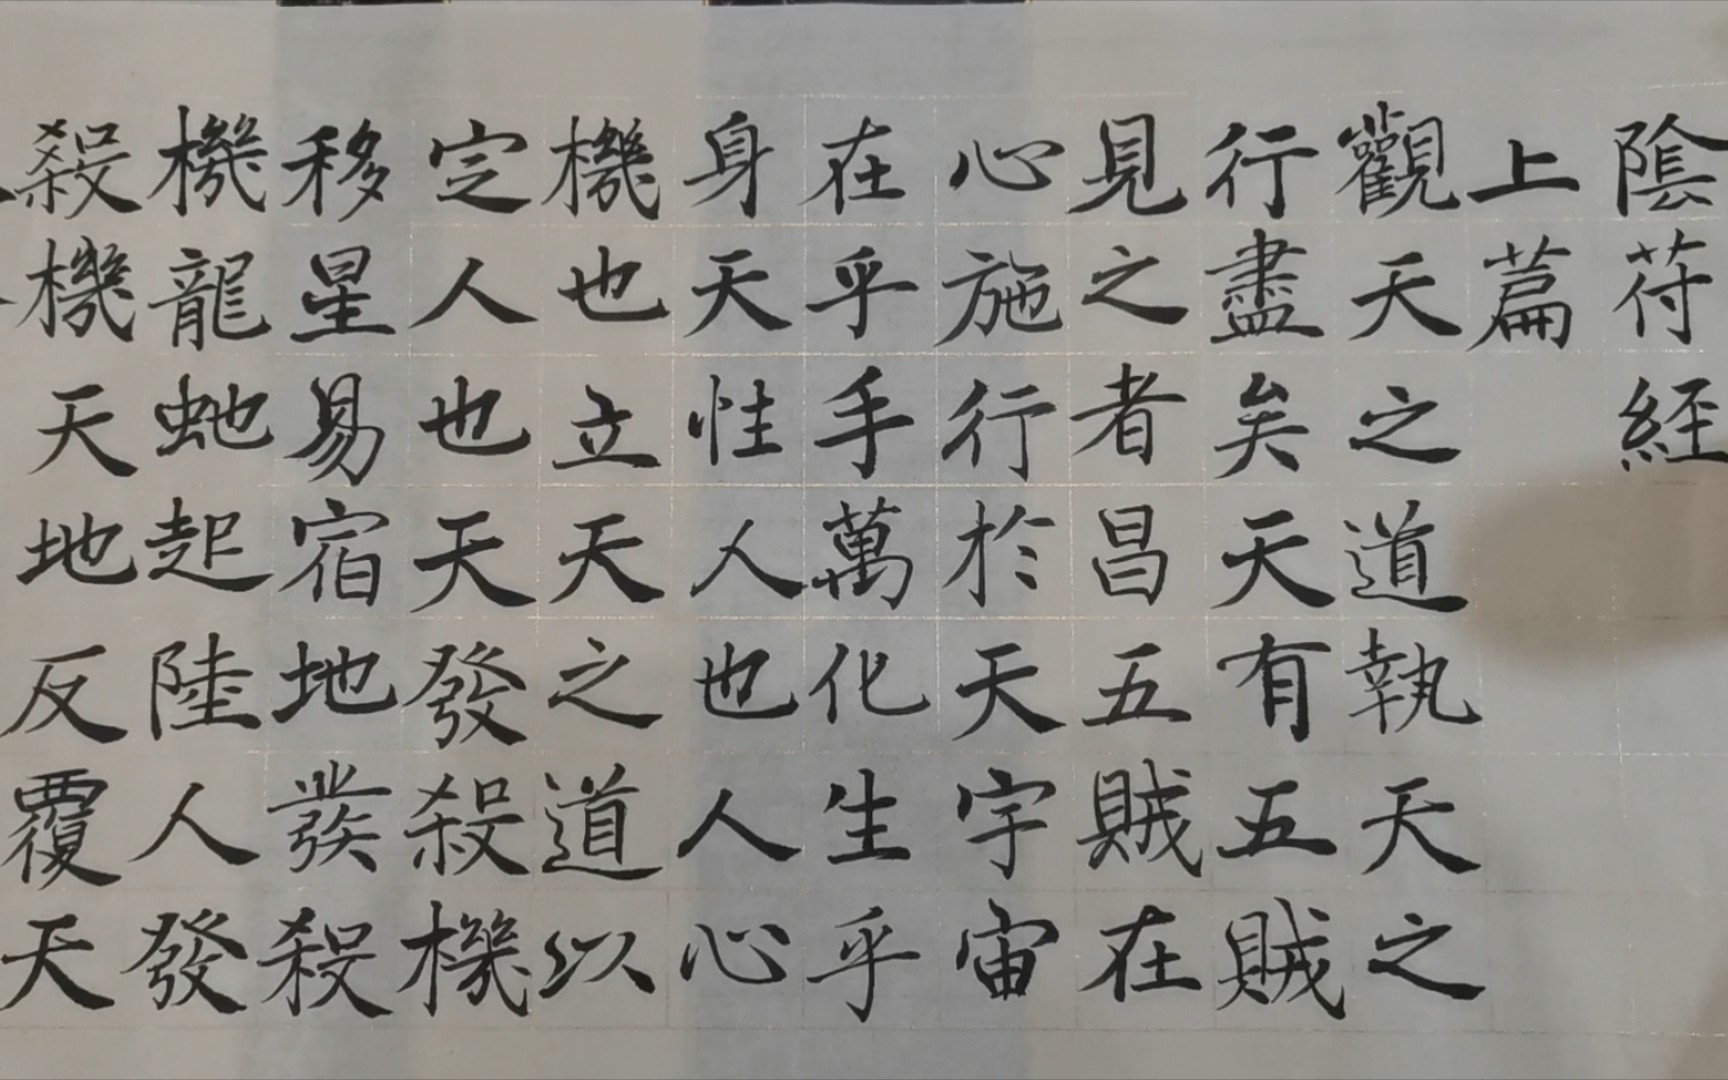 陰符経
上篇
觀天之道執天之
行盡矣天有五賊
見之者昌五賊在
心施行於天宇宙
在乎手萬化生乎
身天性人也人心
機也立天之道以
定人也天發殺機
移星易宿地發殺
機龍虵起陸人發
殺機天地反覆天